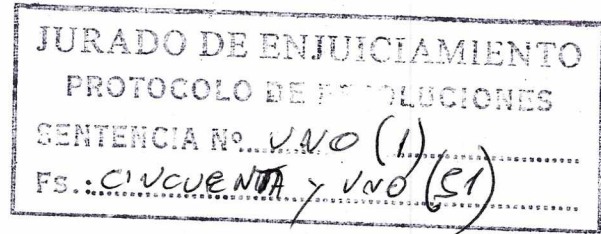 JURADO DE ENJUICIAMIENTO
PROTOCOLO DE RESOLUCIONES
SENTENCIA Nº UNO (1)
Fs.: CINCUENTA Y UNO (51)